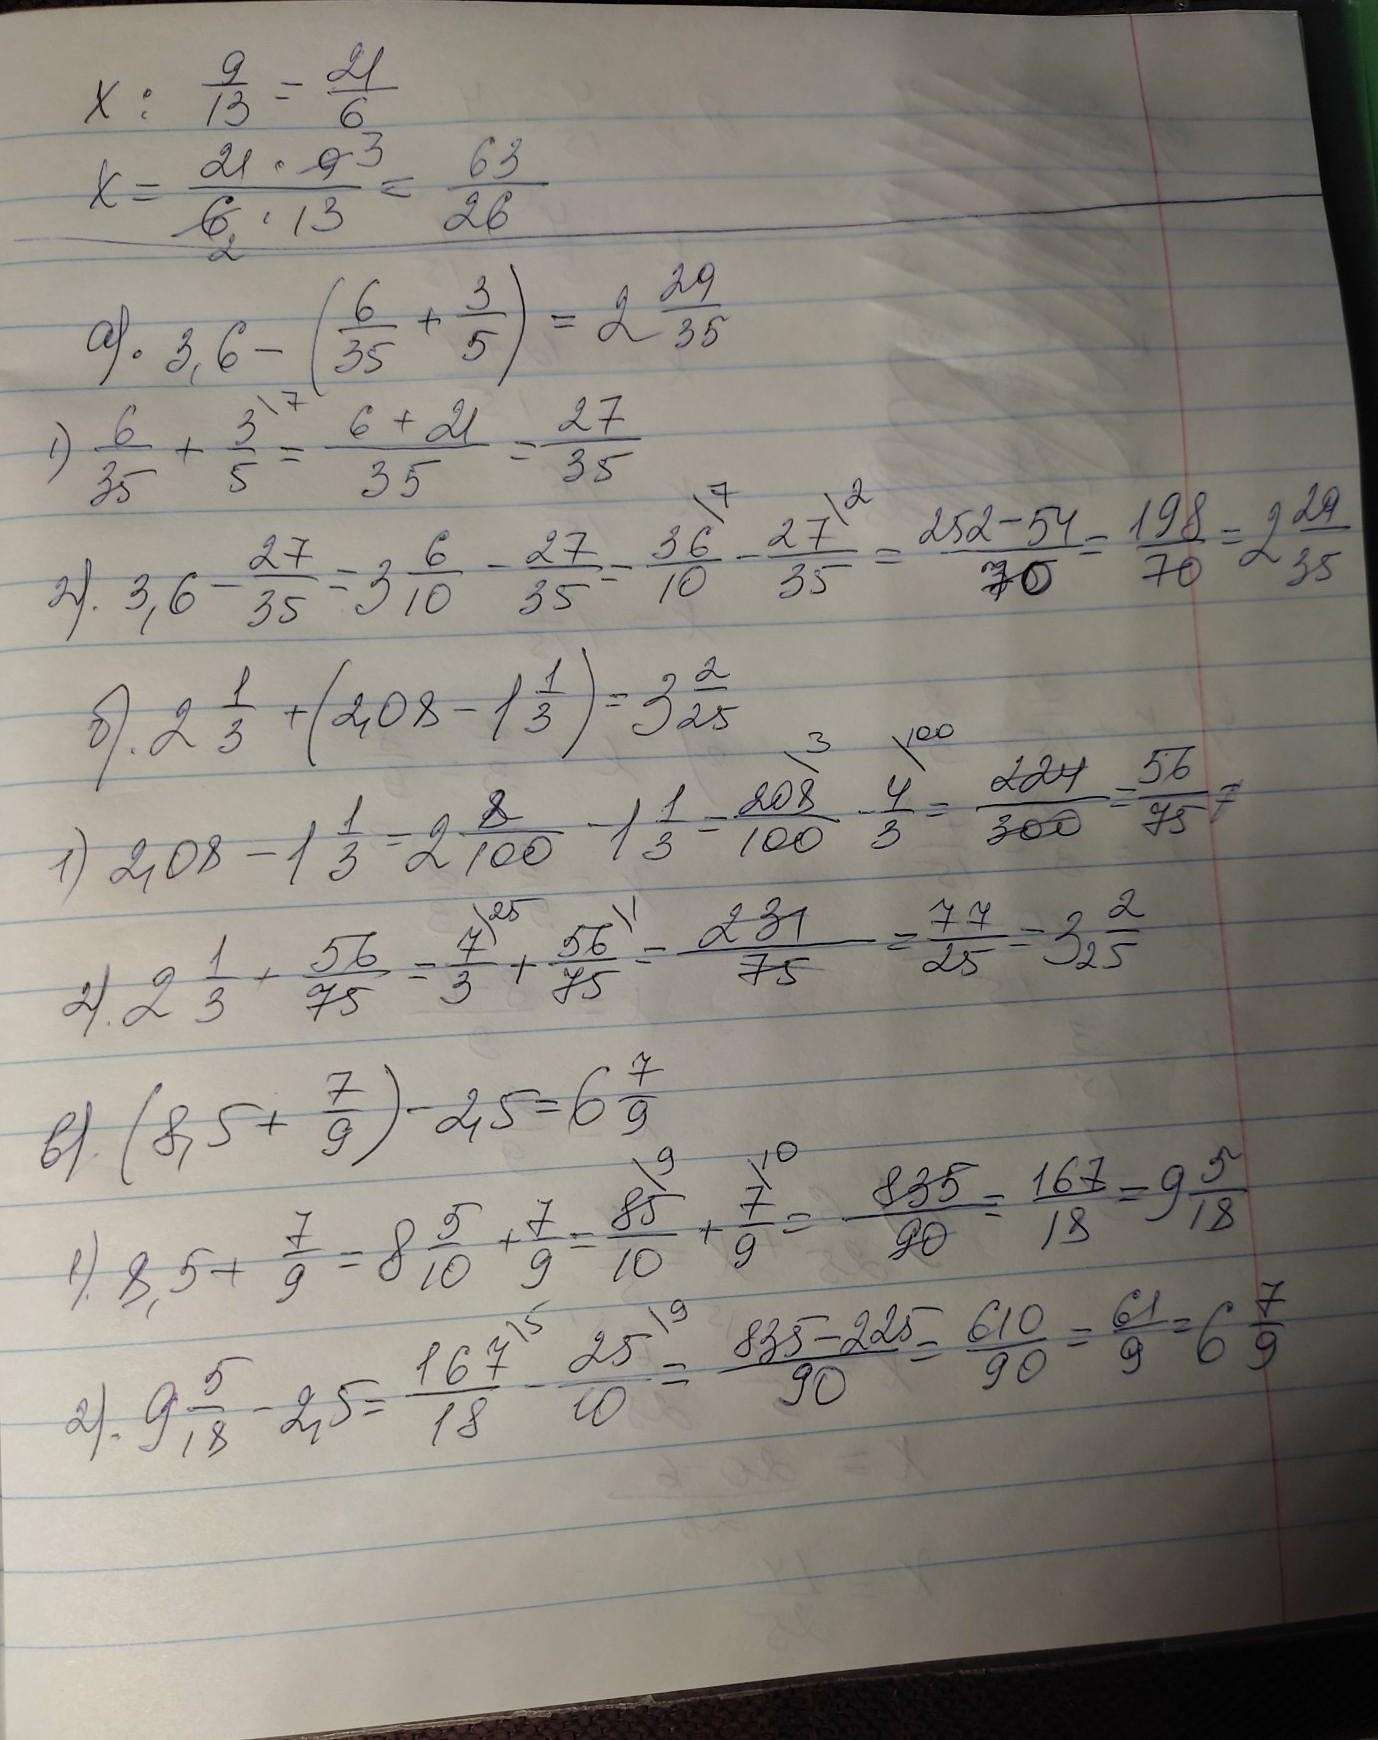 x : 9/13 = 21/6
x = 21 · 9 3 / 6 2 · 13 = 63/26
а). 3,6 - (6/35 + 3/5) = 2 29/35
1) 6/35 + 3/5 \7 = 6 + 21 / 35 = 27/35
2). 3,6 - 27/35 = 3 6/10 - 27/35 = 36/10 \7 - 27/35 \2 = 252 - 54 / 70 = 198/70 = 2 29/35
б). 2 1/3 + (2,08 - 1 1/3) = 3 2/25
1) 2,08 - 1 1/3 = 2 8/100 - 1 1/3 = 208/100 \3 - 4/3 \100 = 224/300 = 56/75 =
2). 2 1/3 + 56/75 = 7/3 \25 + 56/75 \1 = 231/75 = 77/25 = 3 2/25
в). (8,5 + 7/9) - 2,5 = 6 7/9
1). 8,5 + 7/9 = 8 5/10 + 7/9 = 85/10 \9 + 7/9 \10 = 835/90 = 167/18 = 9 5/18
2). 9 5/18 - 2,5 = 167/18 \5 - 25/10 \9 = 835 - 225 / 90 = 610/90 = 61/9 = 6 7/9